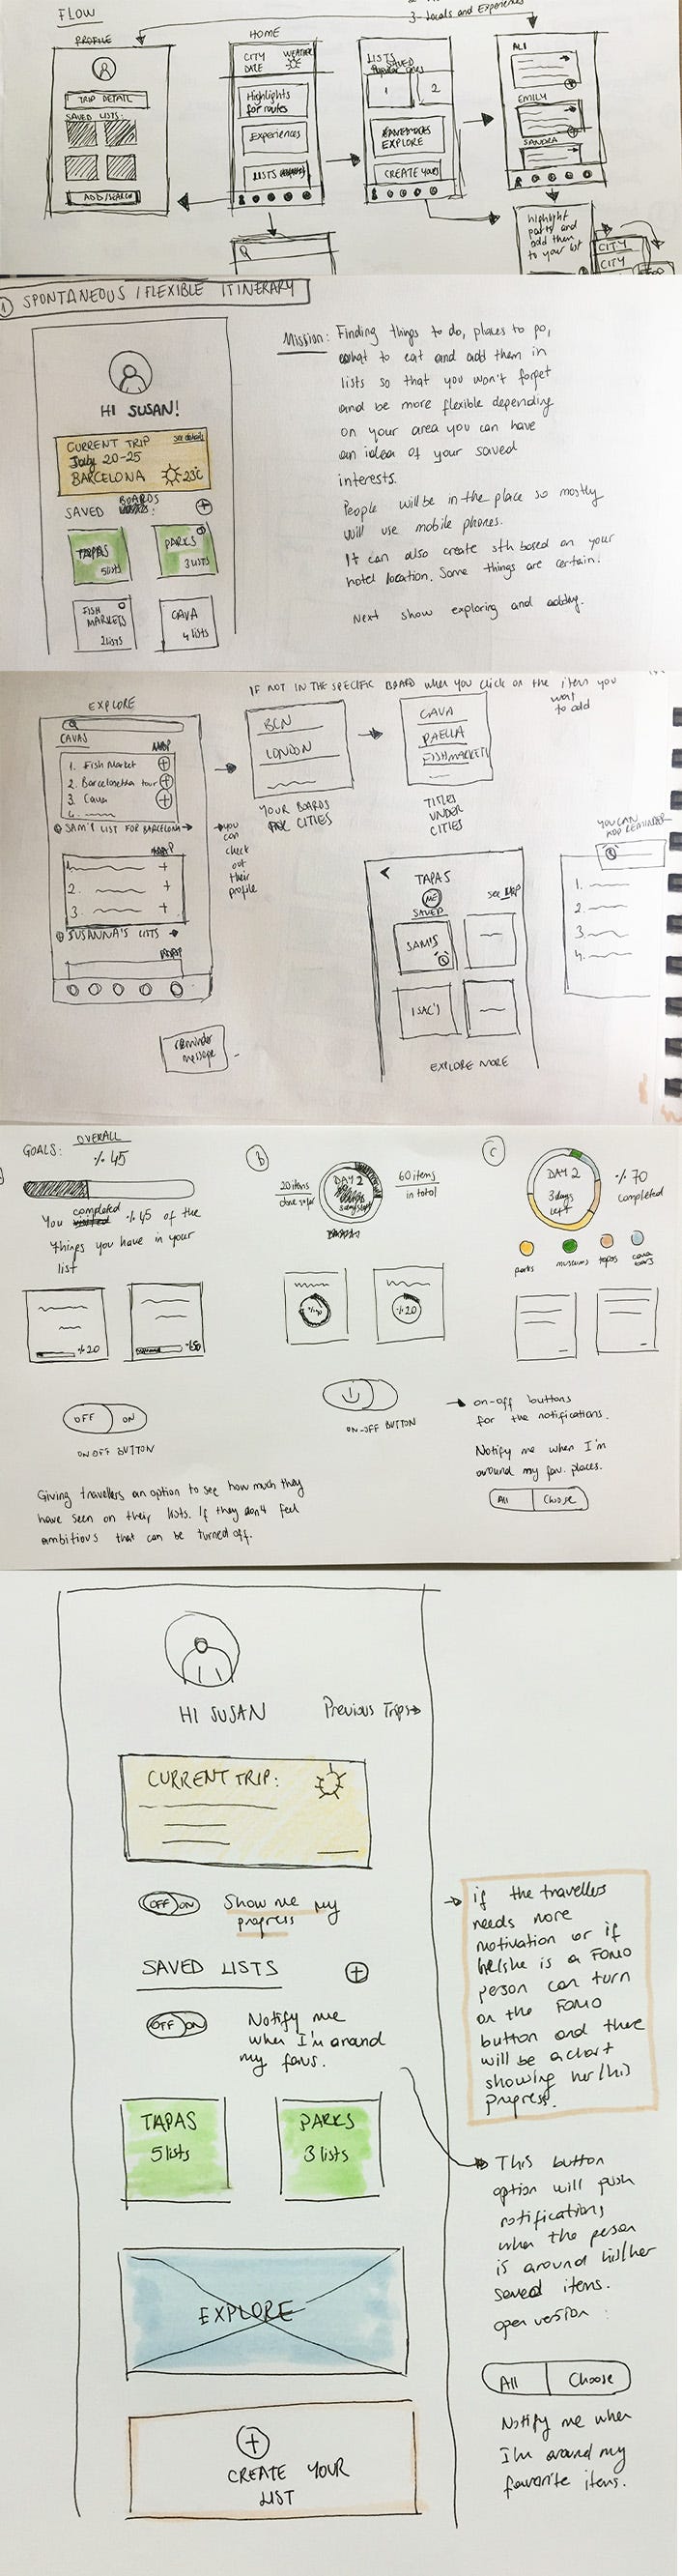 FLOW
3- Locals and Experiences
PROFILE
TRIP DETAIL
SAVED LISTS:
ADD/SEARCH
HOME
CITY WEATHER
DATE
Highlights
for routes
Experiences
LISTS
LISTS SAVED
1 2
EXPLORE
CREATE YOURS
ALI
EMILY
SANDRA
highlight
parts and
add them
to your list
CITY
CITY
1 SPONTANEOUS / FLEXIBLE ITINERARY
HI SUSAN!
CURRENT TRIP see details
July 20-25
BARCELONA 23°C
SAVED BOARDS
TAPAS
5 lists
PARKS
3 LISTS
FISH
MARKETS
2 lists
CAVA
4 lists
Mission: Finding things to do, places to go,
what to eat and add them in
lists so that you won't forget
and be more flexible depending
on your area you can have
an idea of your saved
interests.
People will be in the place so mostly
will use mobile phones.
It can also create sth based on your
hotel location. Some things are certain.
Next show exploring and adding.
EXPLORE
CAVAS
MAP
1. Fish Market +
2. Barceloneta tour +
3. Cava +
4.
SAM'S LIST FOR BARCELONA →
MAP
1. +
2. +
3. +
SUSANNA'S LISTS →
MAP
→ you
can
check
out
their
profile
reminder
message
IF NOT IN THE SPECIFIC BOARD when you click on the item you
want
to add
BCN
LONDON
YOUR BOARDS
CITIES
CAVA
PAELLA
FISHMARKET
TITLES
UNDER
CITIES
TAPAS
ME
SAVED
see MAP
SAM'S
ISAC'S
EXPLORE MORE
YOU CAN
ADD REMINDER
1.
2.
3.
4.
GOALS: OVERALL
% 45
You completed % 45 of the
things you have in your
list
%20
%50
OFF ON
ON-OFF BUTTON
Giving travellers an option to see how much they
have seen on their lists. If they don't feel
ambitious that can be turned off.
B
20 items
done so far
DAY 2
60 items
in total
%20
ON-OFF BUTTON
C
DAY 2
3 days
left
% 70
completed
parks
museums
tapas
cava
bars
→ on-off buttons
for the notifications.
Notify me when I'm
around my fav. places.
All Choose
HI SUSAN
Previous Trips →
CURRENT TRIP:
OFF ON
Show me my
progress
SAVED LISTS +
OFF ON
Notify me
when I'm around
my favs.
TAPAS
5 lists
PARKS
3 lists
EXPLORE
+
CREATE YOUR
LIST
→ if the travelles
needs more
motivation or if
he/she is a FOMO
person can turn
on the FOMO
button and there
will be a chart
showing her/his
progress.
→ This button
option will push
notifications
when the person
is around his/her
saved items.
open version :
All Choose
Notify me when
I'm around my
favorite items.